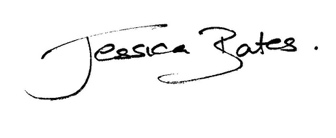 Jessica Bates.